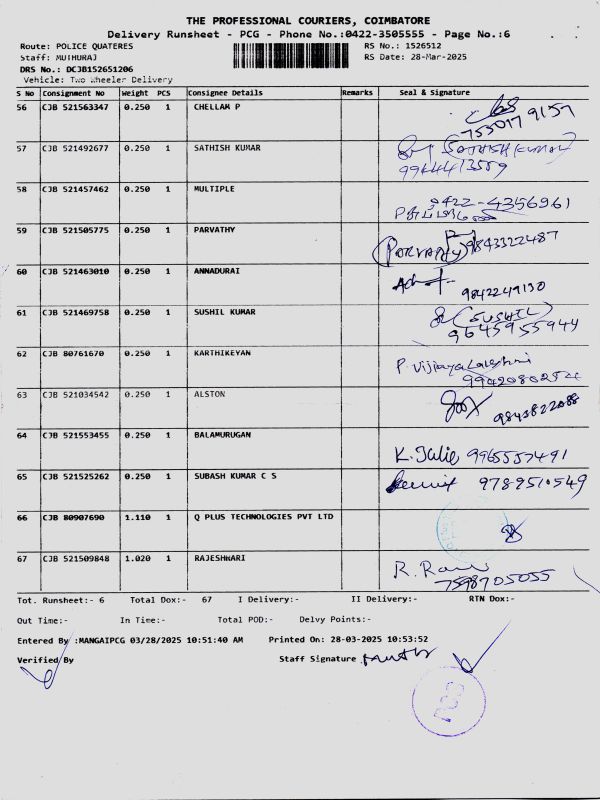 THE PROFESSIONAL COURIERS, COIMBATORE
Delivery Runsheet - PCG - Phone No.:0422-3505555 - Page No.:6
Route: POLICE QUATERES RS No.: 1526512
Staff: MUTHURAJ RS Date: 28-Mar-2025
DRS No.: DCJB152651206
Vehicle: Two Wheeler Delivery
S No Consignment No Weight PCS Consignee Details Remarks Seal & Signature
56 CJB 521563347 0.250 1 CHELLAM P
57 CJB 521492677 0.250 1 SATHISH KUMAR SATHISH KUMAR
9944413559
58 CJB 521457462 0.250 1 MULTIPLE 0422-4356961
59 CJB 521505775 0.250 1 PARVATHY (PARVATHY) 9843322487
60 CJB 521463010 0.250 1 ANNADURAI 9842249130
61 CJB 521469758 0.250 1 SUSHIL KUMAR (SUSHIL)
9645955944
62 CJB 80761670 0.250 1 KARTHIKEYAN P. Vijayalakshmi
9942080254
63 CJB 521034542 0.250 1 ALSTON 9843822088
64 CJB 521553455 0.250 1 BALAMURUGAN K. Julie 9965557491
65 CJB 521525262 0.250 1 SUBASH KUMAR C S 9789510549
66 CJB 80907690 1.110 1 Q PLUS TECHNOLOGIES PVT LTD
67 CJB 521509848 1.020 1 RAJESHWARI R. 
7598705055
Tot. Runsheet:- 6 Total Dox:- 67 I Delivery:- II Delivery:- RTN Dox:-
Out Time:- In Time:- Total POD:- Delvy Points:-
Entered By :MANGAIPCG 03/28/2025 10:51:40 AM Printed On: 28-03-2025 10:53:52
Verified By Staff Signature